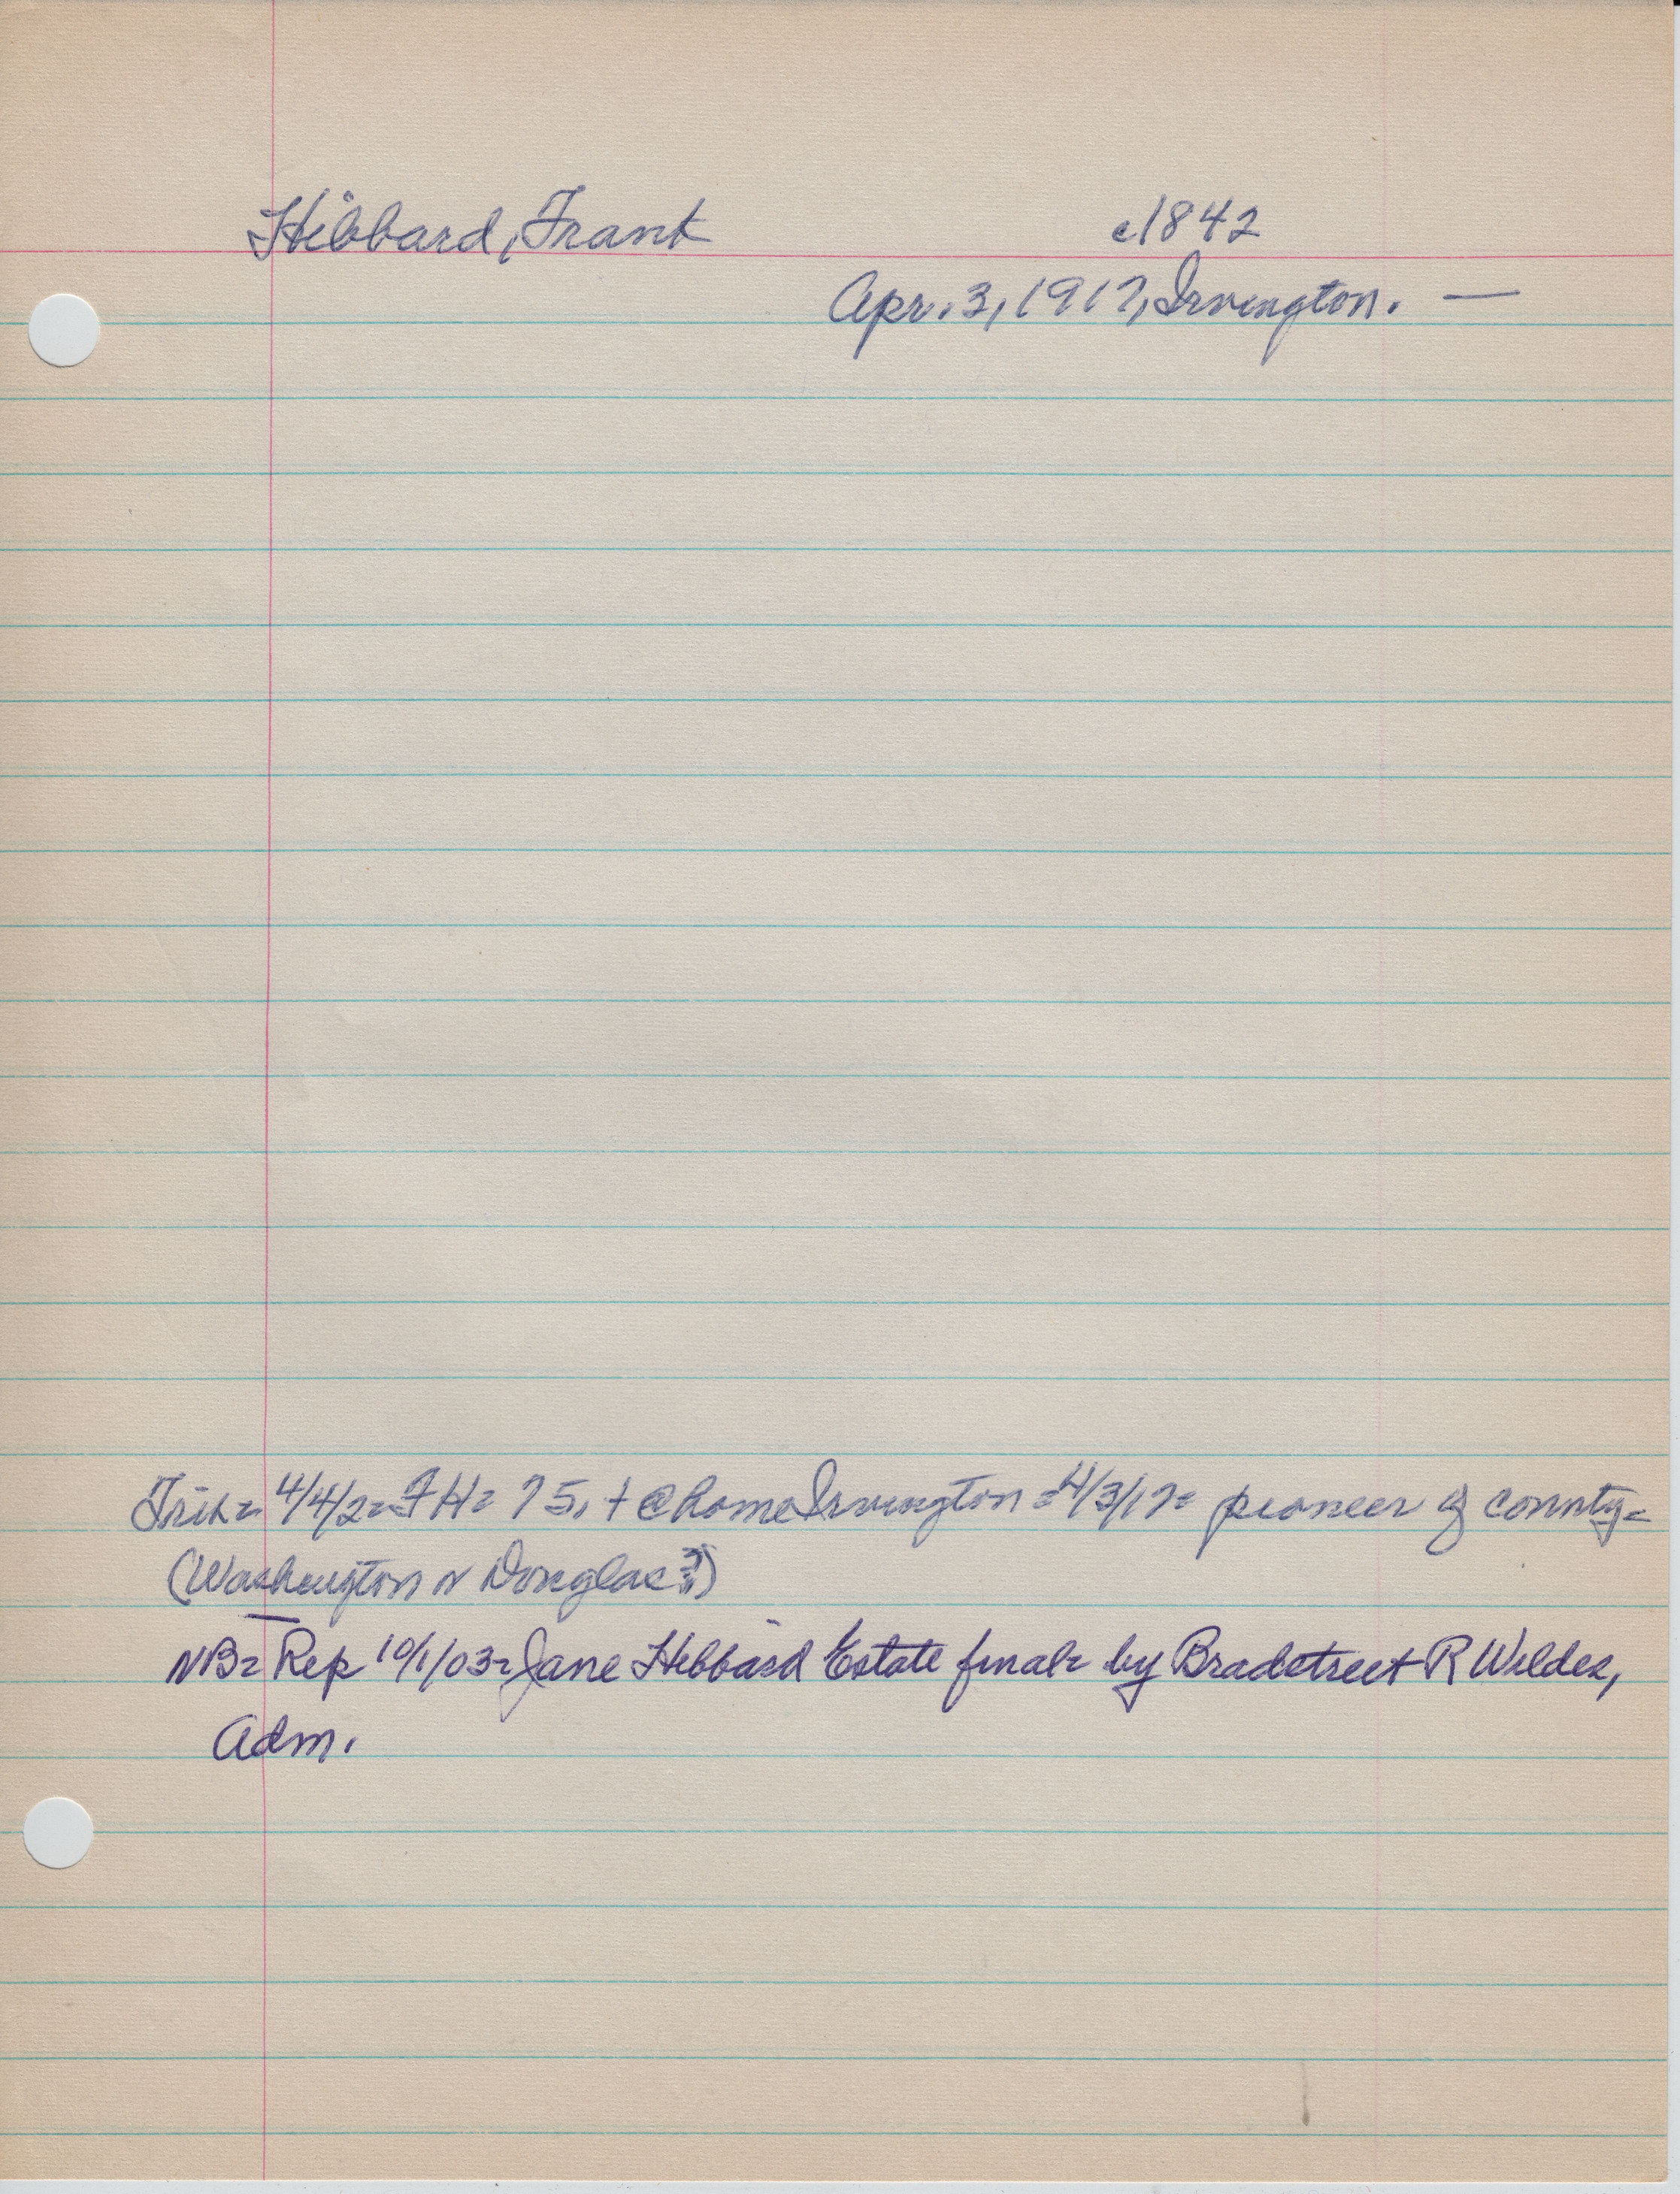 Hibbard, Frank c1842
Apr. 3, 1917, Irvington. —
Trib = 4/4/2 = FH = 75, + @ home Irvington = 4/3/17 = pioneer of county =
(Washington or Douglas?)
NB = Rep 10/1/03 = Jane Hibbard Estate final = by Bradstreet R Wildes,
Adm.